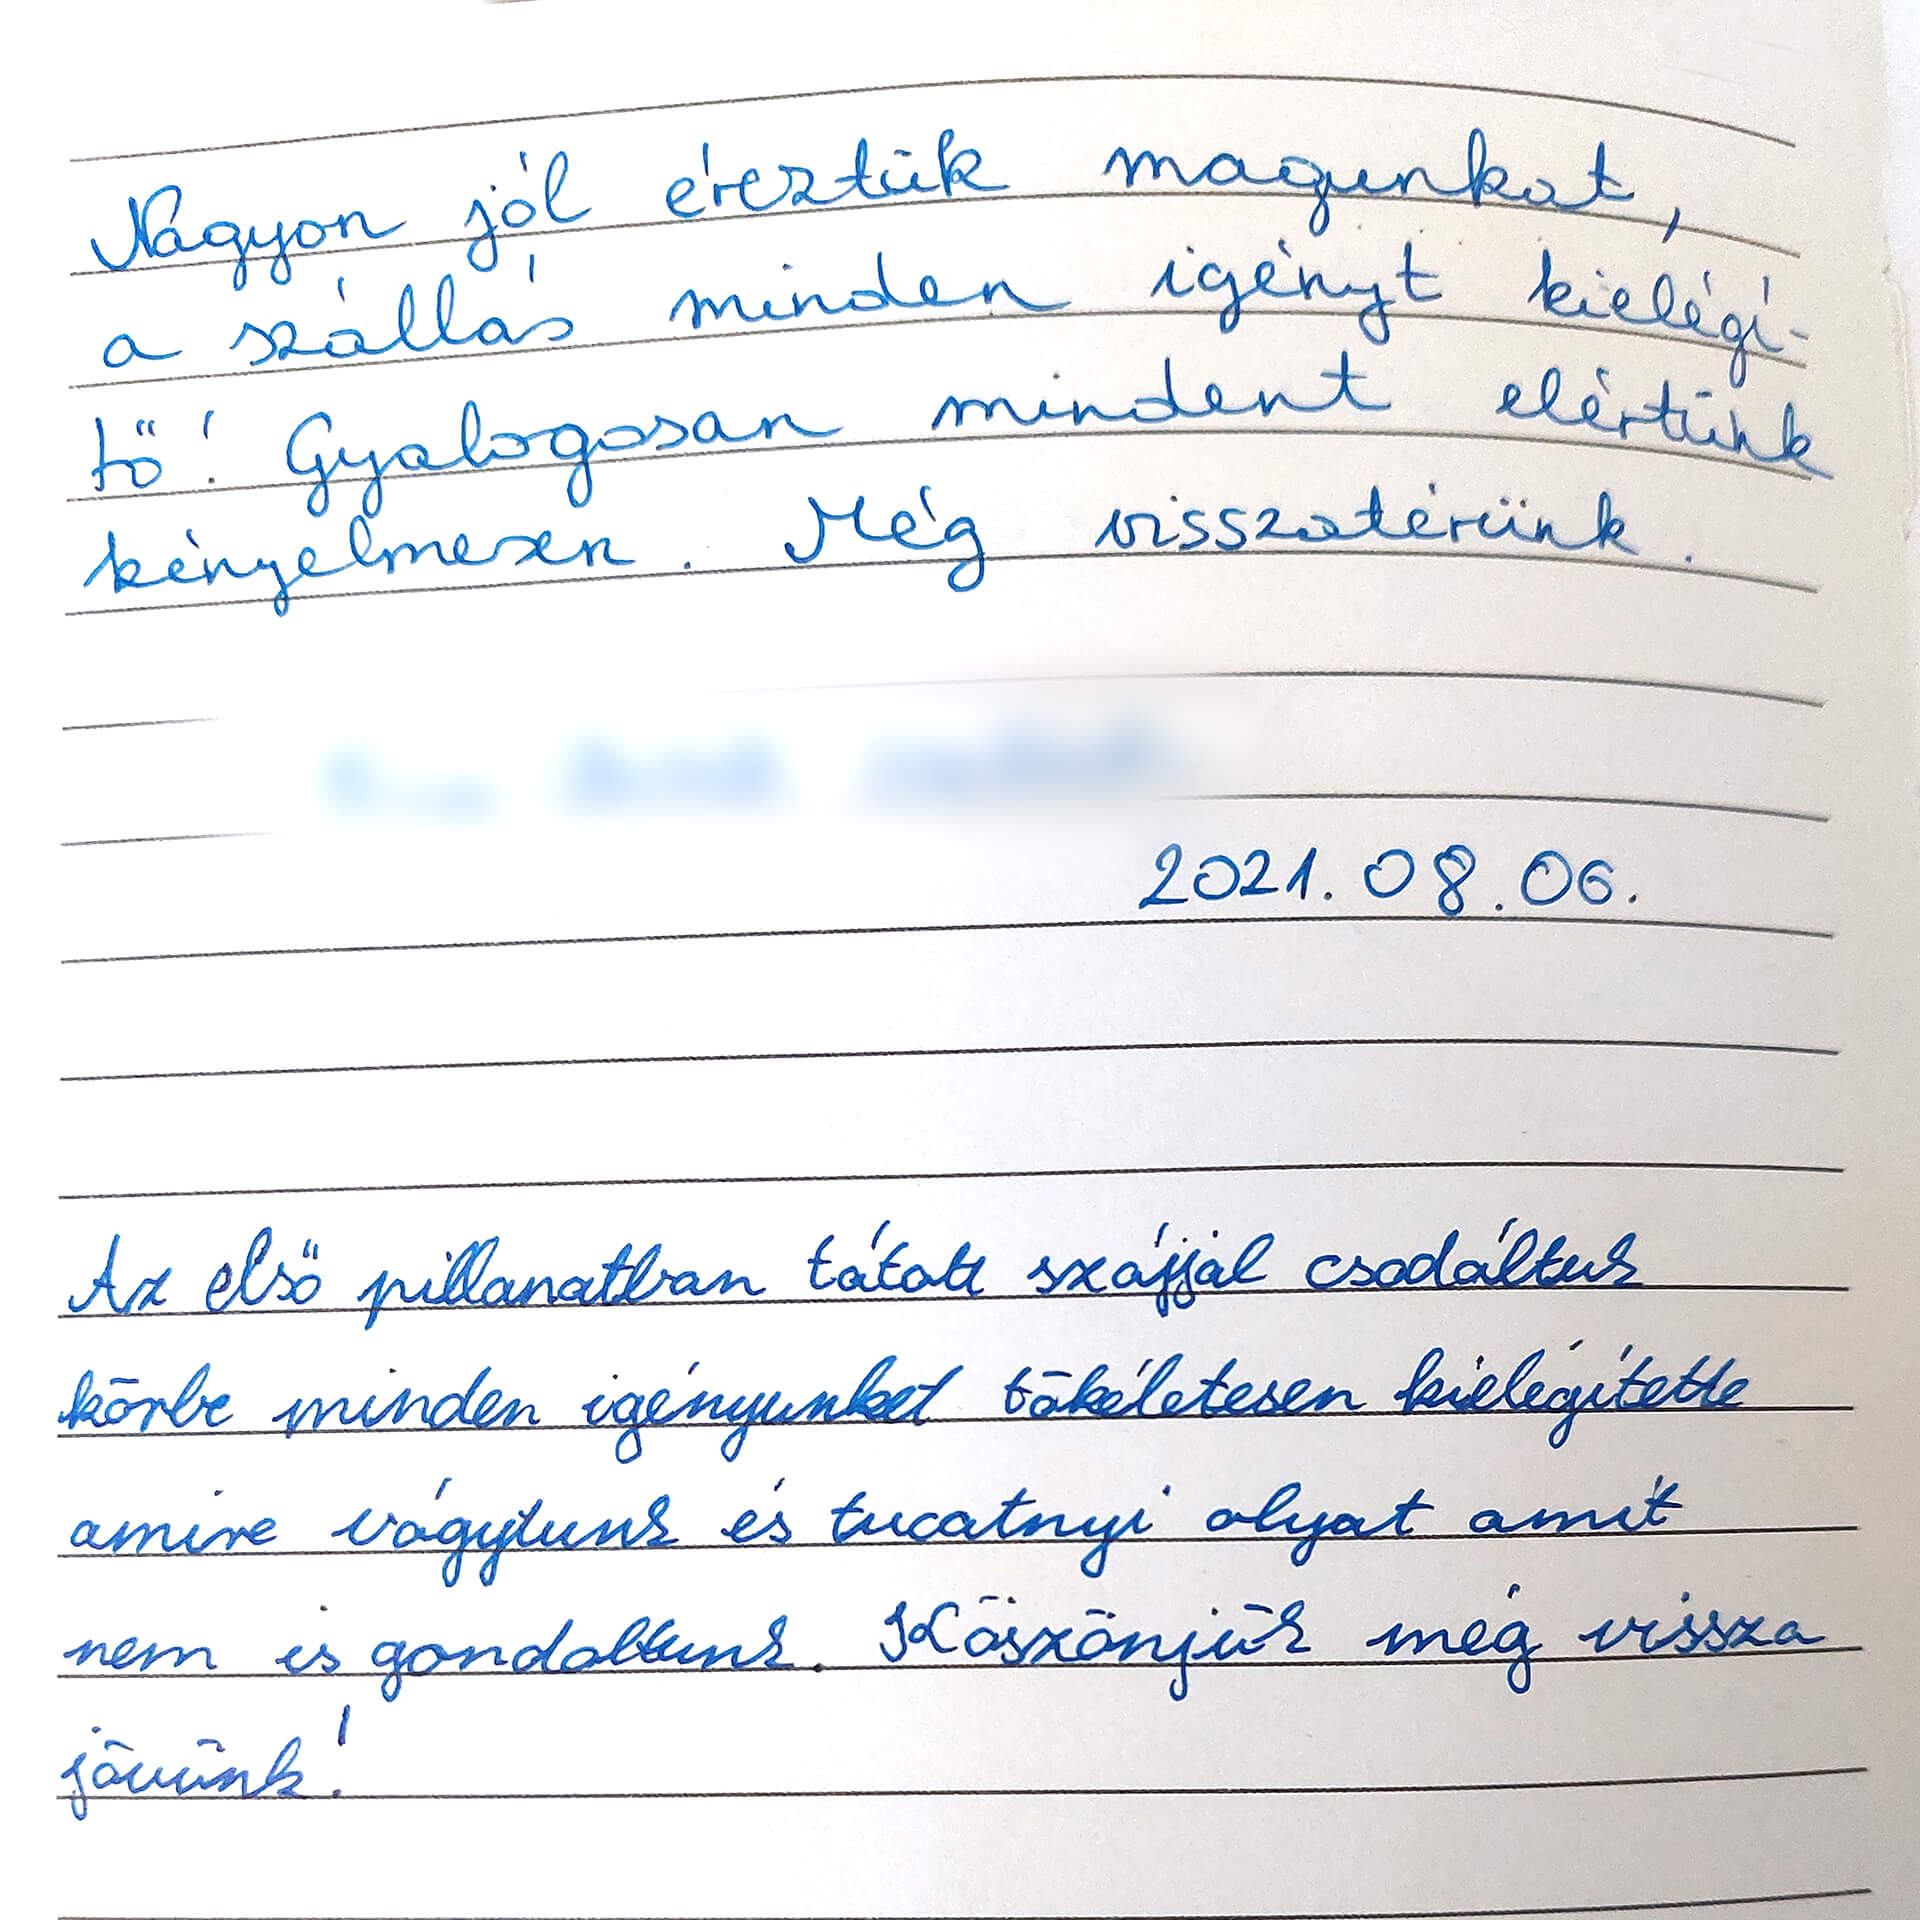 Nagyon jól éreztük magunkat,
a szállás minden igényt kielégí-
tő! Gyalogosan mindent elértünk
kényelmesen. Még visszatérünk.
2021.08.06.
Az első pillanatban tátott szájjal csodáltuk
körbe minden igényünket tökéletesen kielégítette
amire vágytunk és tucatnyi olyat amit
nem is gondoltunk. Köszönjük még vissza
jövünk!